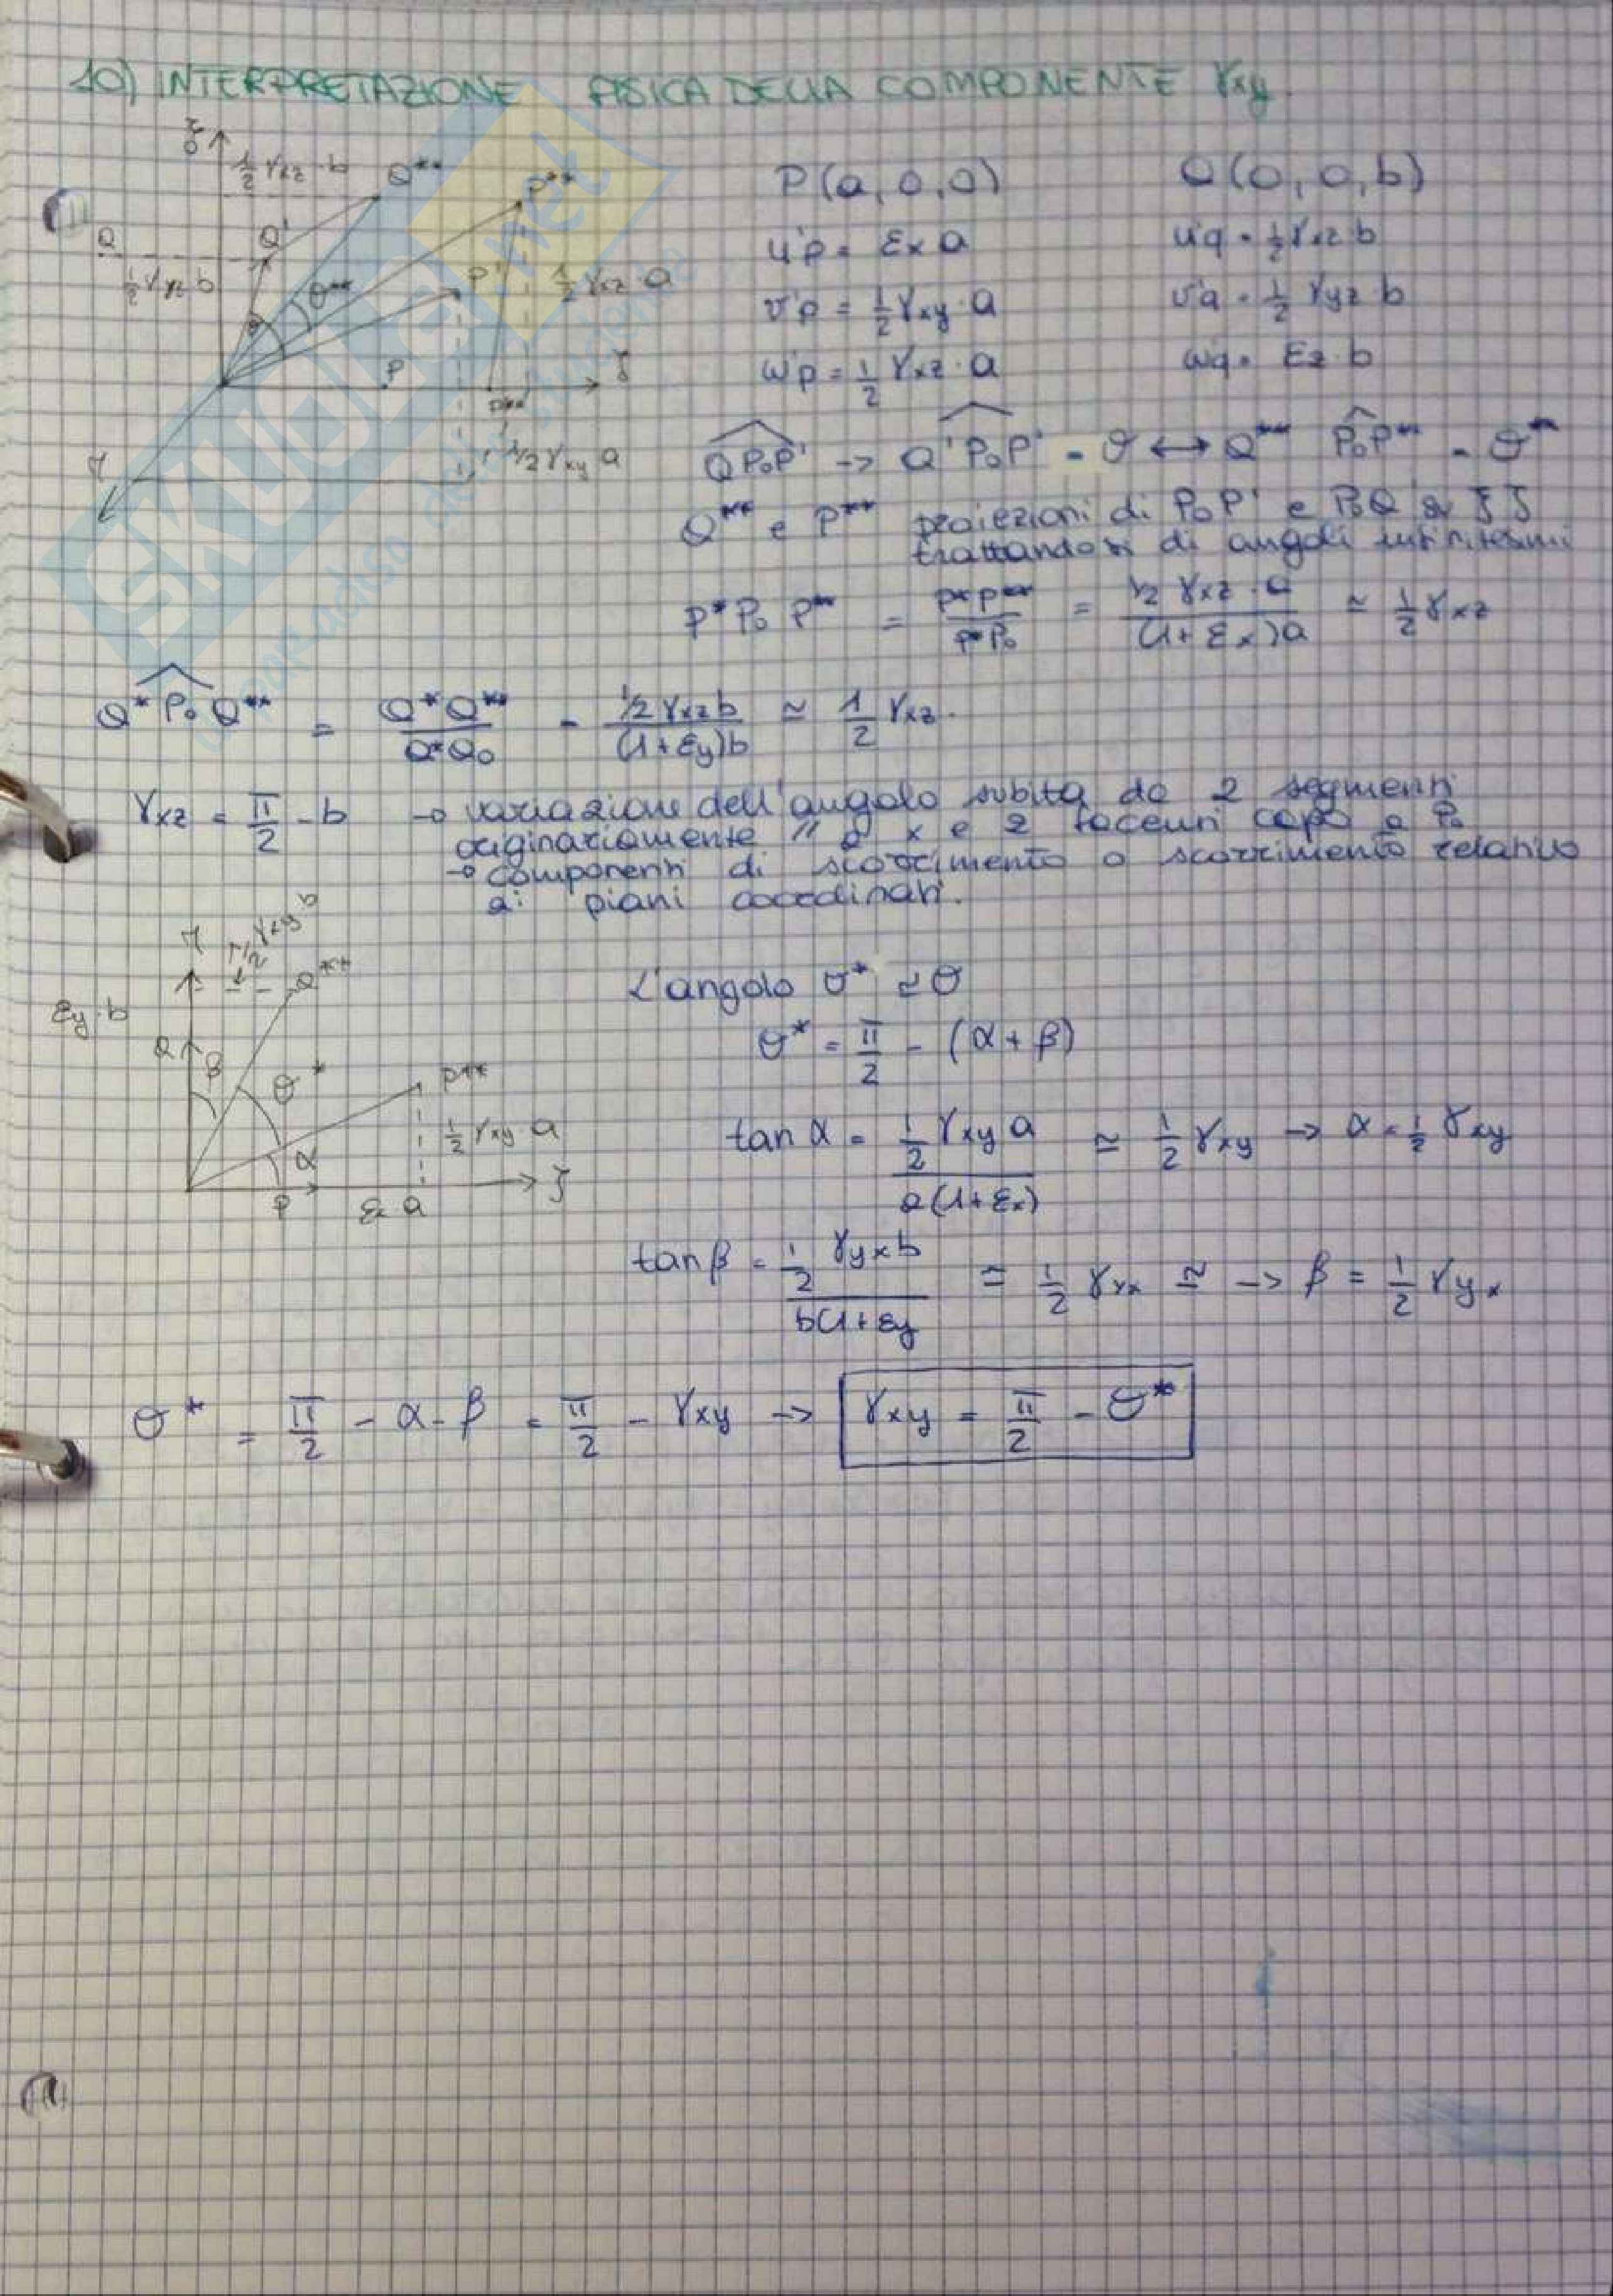 10) INTERPRETAZIONE FISICA DELLA COMPONENTE γxy
ξ
1/2 γxz · b
Q**
P**
P(a,0,0)
Q(0,0,b)
Q
Q'
u'p = εx a
u'q = 1/2 γxz b
1/2 γyz b
θ**
P'
1/2 γxz · a
v'p = 1/2 γxy a
v'q = 1/2 γyz · b
P
ζ
P**
w'p = 1/2 γxz · a
wq = εz · b
η
1/2 γxy a
QP₀P' -> Q'P₀P' = θ <-> Q** P₀P** = θ*
Q** e P** proiezioni di P₀P' e P₀Q' su ξ ζ
trattandosi di angoli infinitesimi
P*P₀ P** = P*P** / P*P₀ = 1/2 γxz · a / (1+εx)a ≃ 1/2 γxz
Q*P₀Q** = Q*Q** / Q*Q₀ = 1/2 γxz b / (1+εy)b ≃ 1/2 γxz.
γxz = π/2 - b -> variazione dell'angolo subita da 2 segmenti
originariamente // a x e z facenti capo a P₀
-> componenti di scorrimento o scorrimento relativo
ai piani coordinati.
η
1/2 γxy b
Q**
εy · b
L'angolo θ* ≃ θ
Q
β
θ*
P**
θ* = π/2 - (α + β)
1/2 γxy a
α
P
εx a
ζ
tan α = 1/2 γxy a / a(1+εx) ≃ 1/2 γxy -> α = 1/2 γxy
tan β = 1/2 γyx b / b(1+εy ≃ 1/2 γyx ≃ -> β = 1/2 γyx
θ* = π/2 - α - β = π/2 - γxy -> γxy = π/2 - θ*
SKUOLA.net